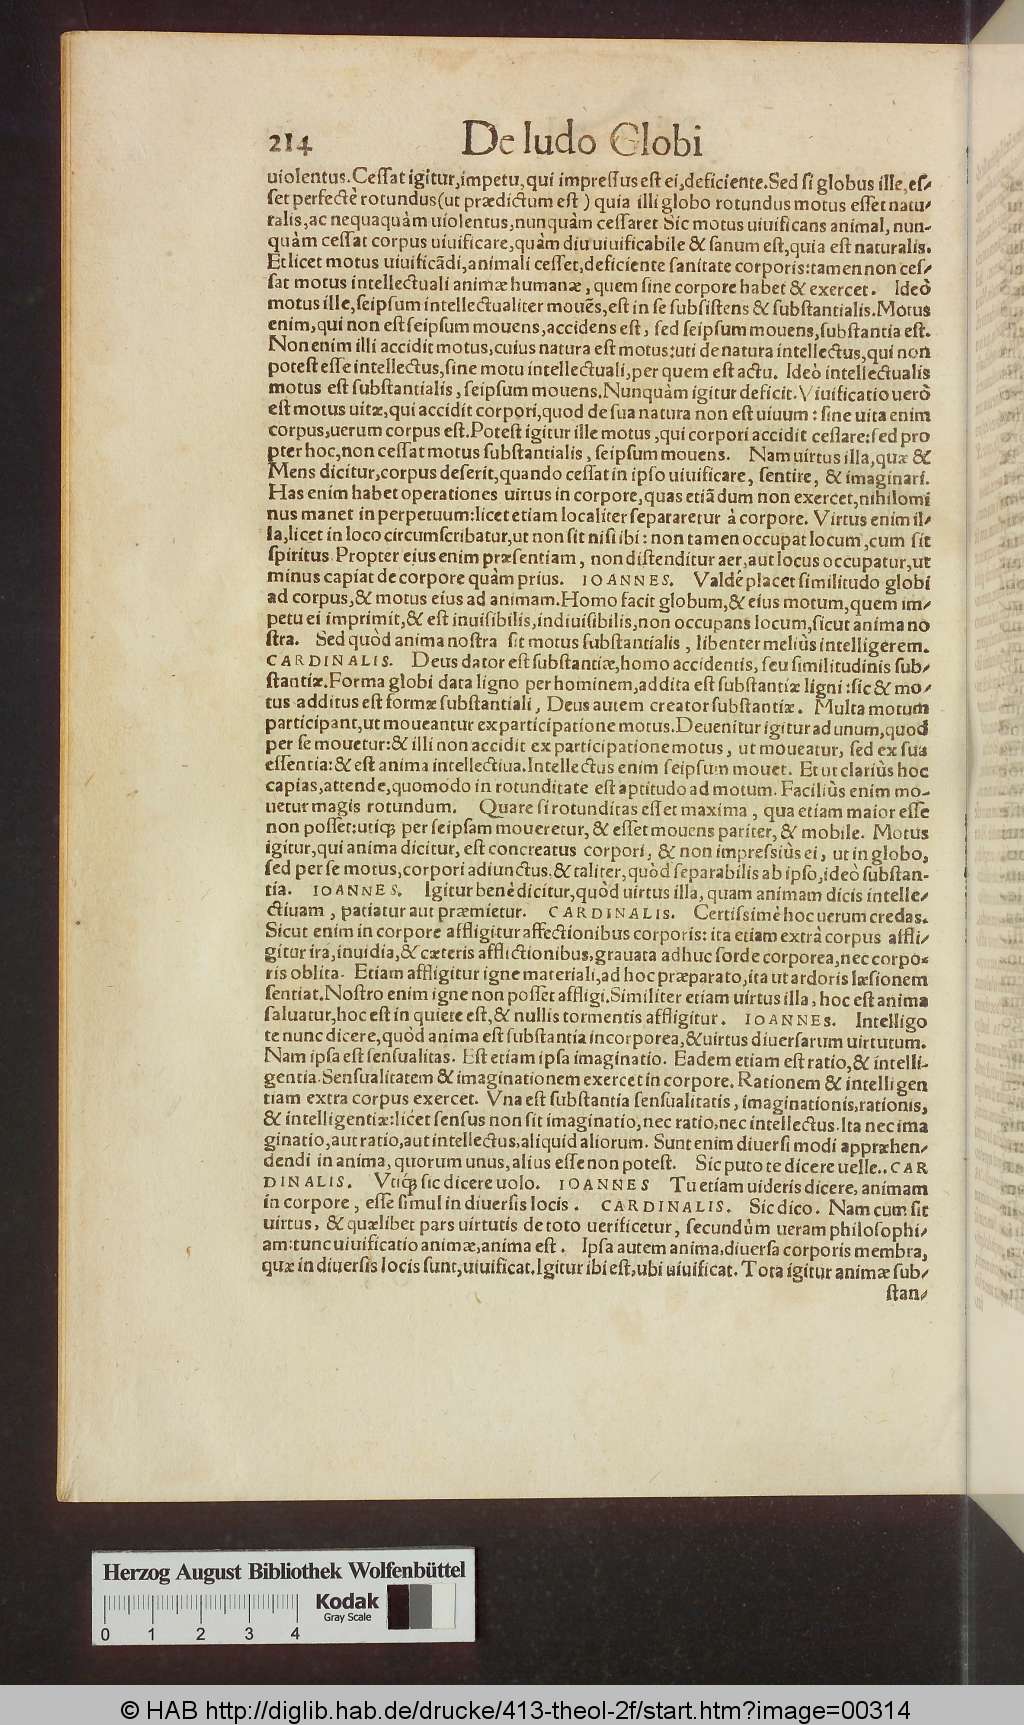 214 De ludo Globi
uiolentus. Cessat igitur, impetu, qui impressus est ei, deficiente. Sed si globus ille, es⸗
set perfectè rotundus (ut prædictum est) quia illi globo rotundus motus esset natu⸗
ralis, ac nequaquàm uiolentus, nunquàm cessaret Sic motus uiuificans animal, nun-
quàm cessat corpus uiuificare, quàm diu uiuificabile & sanum est, quia est naturalis.
Et licet motus uiuificãdi, animali cesset, deficiente sanitate corporis: tamen non ces⸗
sat motus intellectuali animæ humanæ, quem sine corpore habet & exercet. Ideò
motus ille, seipsum intellectualiter mouẽs, est in se subsistens & substantialis. Motus
enim, qui non est seipsum mouens, accidens est, sed seipsum mouens, substantia est.
Non enim illi accidit motus, cuius natura est motus: uti de natura intellectus, qui non
potest esse intellectus, sine motu intellectuali, per quem est actu. Ideò intellectualis
motus est substantialis, seipsum mouens. Nunquàm igitur deficit. Viuificatio uerò
est motus uitæ, qui accidit corpori, quod de sua natura non est uiuum: sine uita enim
corpus, uerum corpus est. Potest igitur ille motus, qui corpori accidit cessare: sed pro
pter hoc, non cessat motus substantialis, seipsum mouens. Nam uirtus illa, quæ &
Mens dicitur, corpus deserit, quando cessat in ipso uiuificare, sentire, & imaginari.
Has enim habet operationes uirtus in corpore, quas etiã dum non exercet, nihilomi
nus manet in perpetuum: licet etiam localiter separaretur à corpore. Virtus enim il⸗
la, licet in loco circumscribatur, ut non sit nisi ibi: non tamen occupat locum, cum sit
spiritus. Propter eius enim præsentiam, non distenditur aer, aut locus occupatur, ut
minus capiat de corpore quàm prius. IOANNES. Valdé placet similitudo globi
ad corpus, & motus eius ad animam. Homo facit globum, & eius motum, quem im⸗
petu ei imprimit, & est inuisibilis, indiuisibilis, non occupans locum, sicut anima no
stra. Sed quòd anima nostra sit motus substantialis, libenter meliùs intelligerem.
CARDINALIS. Deus dator est substantiæ, homo accidentis, seu similitudinis sub⸗
stantiæ. Forma globi data ligno per hominem, addita est substantiæ ligni: sic & mo⸗
tus additus est formæ substantiali, Deus autem creator substantiæ. Multa motum
participant, ut moueantur ex participatione motus. Deuenitur igitur ad unum, quod
per se mouetur: & illi non accidit ex participatione motus, ut moueatur, sed ex sua
essentia: & est anima intellectiua. Intellectus enim seipsum mouet. Et ut clariùs hoc
capias, attende, quomodo in rotunditate est aptitudo ad motum. Faciliùs enim mo-
uetur magis rotundum. Quare si rotunditas esset maxima, qua etiam maior esse
non posset: utiq́; per seipsam moueretur, & esset mouens pariter, & mobile. Motus
igitur, qui anima dicitur, est concreatus corpori, & non impressiùs ei, ut in globo,
sed per se motus, corpori adiunctus. & taliter, quòd separabilis ab ipso, ideò substan-
tia. IOANNES. Igitur benè dicitur, quòd uirtus illa, quam animam dicis intelle⸗
ctiuam, patiatur aut præmietur. CARDINALIS. Certissimè hoc uerum credas.
Sicut enim in corpore affligitur affectionibus corporis: ita etiam extrà corpus affli⸗
gitur ira, inuidia, & cæteris afflictionibus, grauata adhuc sorde corporea, nec corpo⸗
ris oblita. Etiam affligitur igne materiali, ad hoc præparato, ita ut ardoris læsionem
sentiat. Nostro enim igne non posset affligi. Similiter etiam uirtus illa, hoc est anima
saluatur, hoc est in quiete est, & nullis tormentis affligitur. IOANNES. Intelligo
te nunc dicere, quòd anima est substantia incorporea, & uirtus diuersarum uirtutum.
Nam ipsa est sensualitas. Est etiam ipsa imaginatio. Eadem etiam est ratio, & intelli-
gentia. Sensualitatem & imaginationem exercet in corpore. Rationem & intelligen
tiam extra corpus exercet. Vna est substantia sensualitatis, imaginationis, rationis,
& intelligentiæ: licet sensus non sit imaginatio, nec ratio, nec intellectus. Ita nec ima
ginatio, aut ratio, aut intellectus, aliquid aliorum. Sunt enim diuersi modi appræhen⸗
dendi in anima, quorum unus, alius esse non potest. Sic puto te dicere uelle.. CAR
DINALIS. Vtiq́; sic dicere uolo. IOANNES Tu etiam uideris dicere, animam
in corpore, esse simul in diuersis locis. CARDINALIS. Sic dico. Nam cum sit
uirtus, & quælibet pars uirtutis de toto uerificetur, secundùm ueram philosophi⸗
am: tunc uiuificatio animæ, anima est. Ipsa autem anima, diuersa corporis membra,
quæ in diuersis locis sunt, uiuificat. Igitur ibi est, ubi uiuificat. Tota igitur animæ sub⸗
stan⸗
Herzog August Bibliothek Wolfenbüttel
Kodak
Gray Scale
0 1 2 3 4
© HAB http://diglib.hab.de/drucke/413-theol-2f/start.htm?image=00314